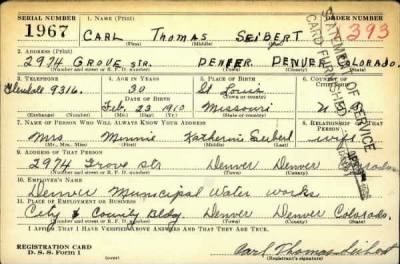 SERIAL NUMBER 1. NAME (Print) ORDER NUMBER
1967 CARL Thomas SEIBERT 393
(First) (Middle) (Last)
2. ADDRESS (Print)
2974 GROVE STR. DENVER DENVER COLORADO.
(Number and street or R. F. D. number) (Town) (County) (State)
3. TELEPHONE 4. AGE IN YEARS 5. PLACE OF BIRTH 6. COUNTRY OF CITIZENSHIP
Glendale 9316. 30 St Louis
DATE OF BIRTH
Feb. 23 1910 Missouri U.
(Exchange) (Number) (Mo.) (Day) (Yr.) (State or country)
7. NAME OF PERSON WHO WILL ALWAYS KNOW YOUR ADDRESS 8. RELATIONSHIP OF THAT PERSON
Mrs Minnie Katherine Seibert wife
(Mr., Mrs., Miss) (First) (Middle) (Last)
9. ADDRESS OF THAT PERSON
2974 Grove str Denver Denver Colorado
(Number and street or R. F. D. number) (Town) (County) (State)
10. EMPLOYER'S NAME
Denver Municipal Water works
11. PLACE OF EMPLOYMENT OR BUSINESS
City & County Bldg. Denver Denver Colorado,
(Number and street or R. F. D. number) (Town) (County) (State)
I AFFIRM THAT I HAVE VERIFIED ABOVE ANSWERS AND THAT THEY ARE TRUE.
REGISTRATION CARD
D. S. S. Form 1
Carl Thomas Seibert
(Registrant's signature)
STATEMENT OF SERVICE
CARD FURNISHED